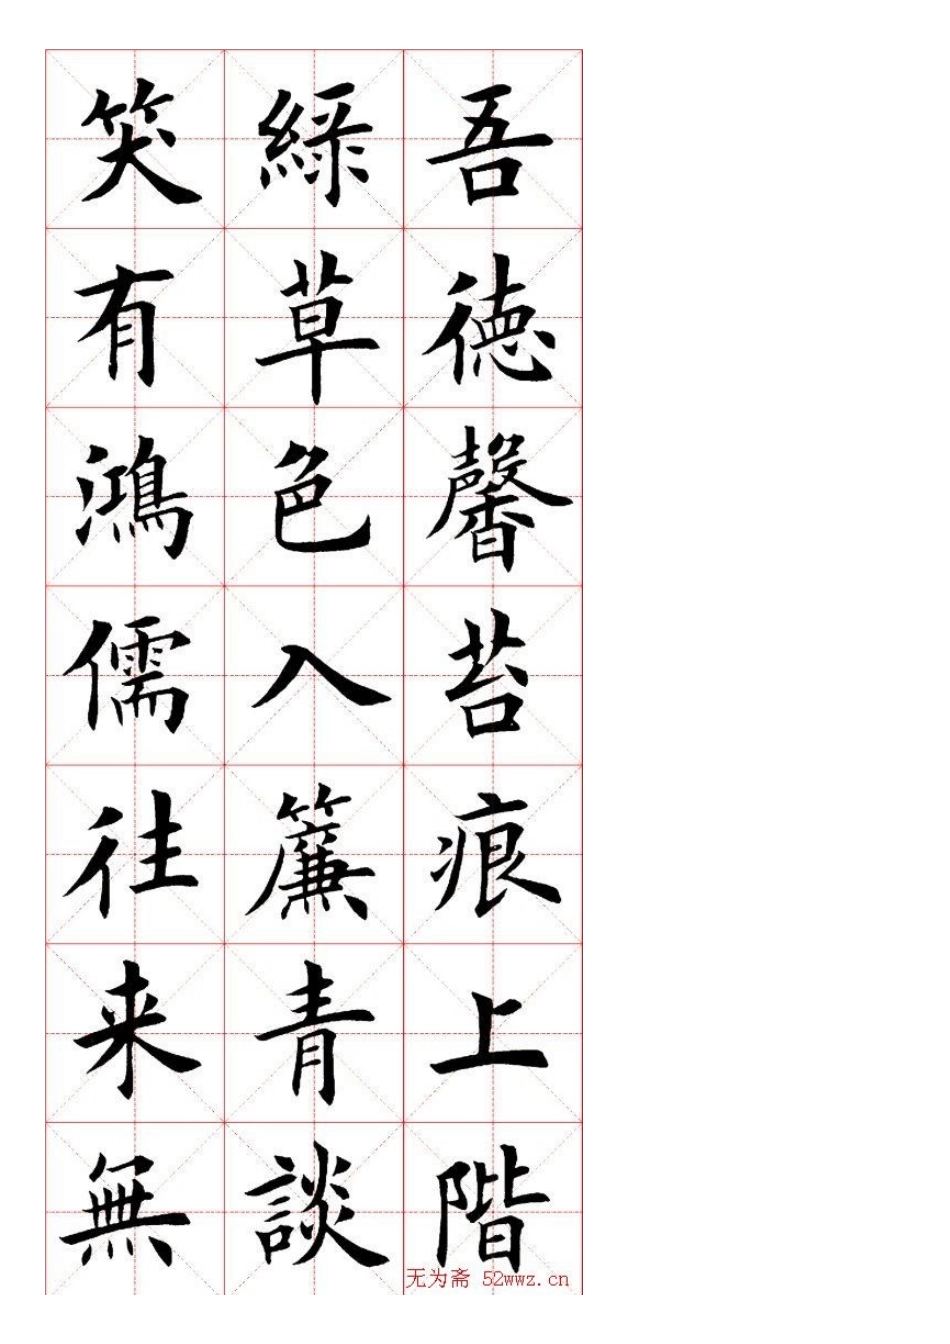 吾德馨苔痕上階
綠草色入簾青談
笑有鴻儒往来無
无为斋 52wwz.cn